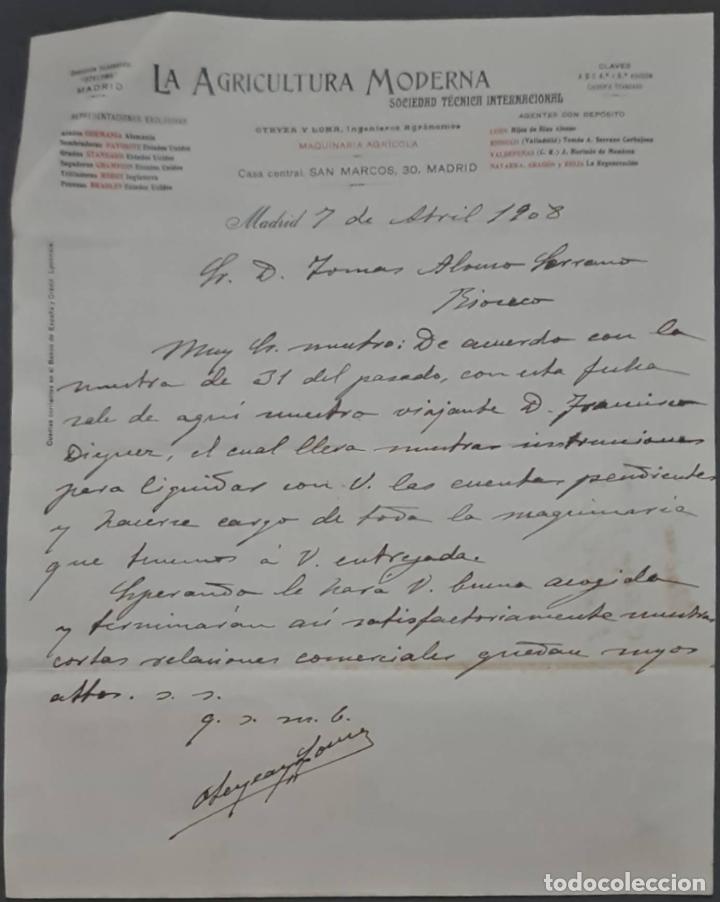 MADRID
LA AGRICULTURA MODERNA
SOCIEDAD TÉCNICA INTERNACIONAL
CLAVES
A B C 4.ª y 5.ª edición
REPRESENTACIONES EXCLUSIVAS
Arados GERMANIA Alemania
Sembradoras FAVORITE Estados Unidos
Gradas STANDARD Estados Unidos
Segadoras CHAMPION Estados Unidos
Trilladoras Inglaterra
Prensas BRADLEY Estados Unidos
OTEYZA Y LOMA, Ingenieros Agrónomos
MAQUINARIA AGRÍCOLA
Casa central, SAN MARCOS, 30, MADRID
AGENTES CON DEPÓSITO
LEON Hijos de Blas Alonso
RIOSECO (Valladolid) Tomás A. Serrano Carbajosa
VALDEPEÑAS (C. R.) J. Hurtado de Mendoza
NAVARRA, ARAGÓN y RIOJA La Regeneración
Cuentas corrientes en el Banco de España y Crédit Lyonnais
Madrid 7 de Abril 1908
Sr. D. Tomas Alonso Serrano
Rioseco
Muy Sr. nuestro: De acuerdo con la
nuestra de 31 del pasado, con esta fecha
sale de aquí nuestro viajante D. Francisco
Dieguez, el cual lleva nuestras instrucciones
para liquidar con V. las cuentas pendientes
y hacerse cargo de toda la maquinaria
que tenemos á V. entregada.
Esperando le hará V. buena acogida
y terminarán así satisfactoriamente nuestras
cortas relaciones comerciales quedan suyos
attos. s. s.
q. s. m. b.
Oteyza y Loma
todocoleccion.net